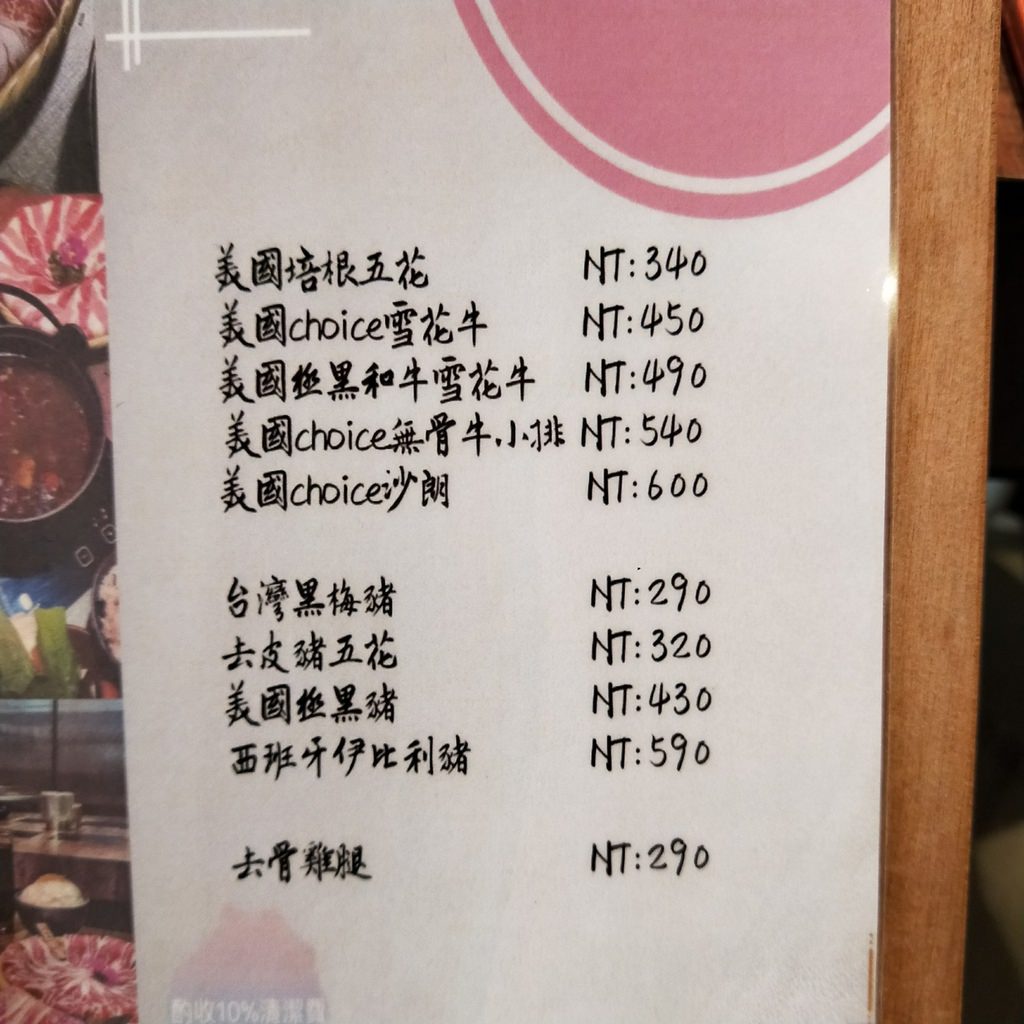 美國培根五花 NT:340
美國choice雪花牛 NT:450
美國極黑和牛雪花牛 NT:490
美國choice無骨牛小排 NT:540
美國choice沙朗 NT:600
台灣黑梅豬 NT:290
去皮豬五花 NT:320
美國極黑豬 NT:430
西班牙伊比利豬 NT:590
去骨雞腿 NT:290
酌收10%清潔費